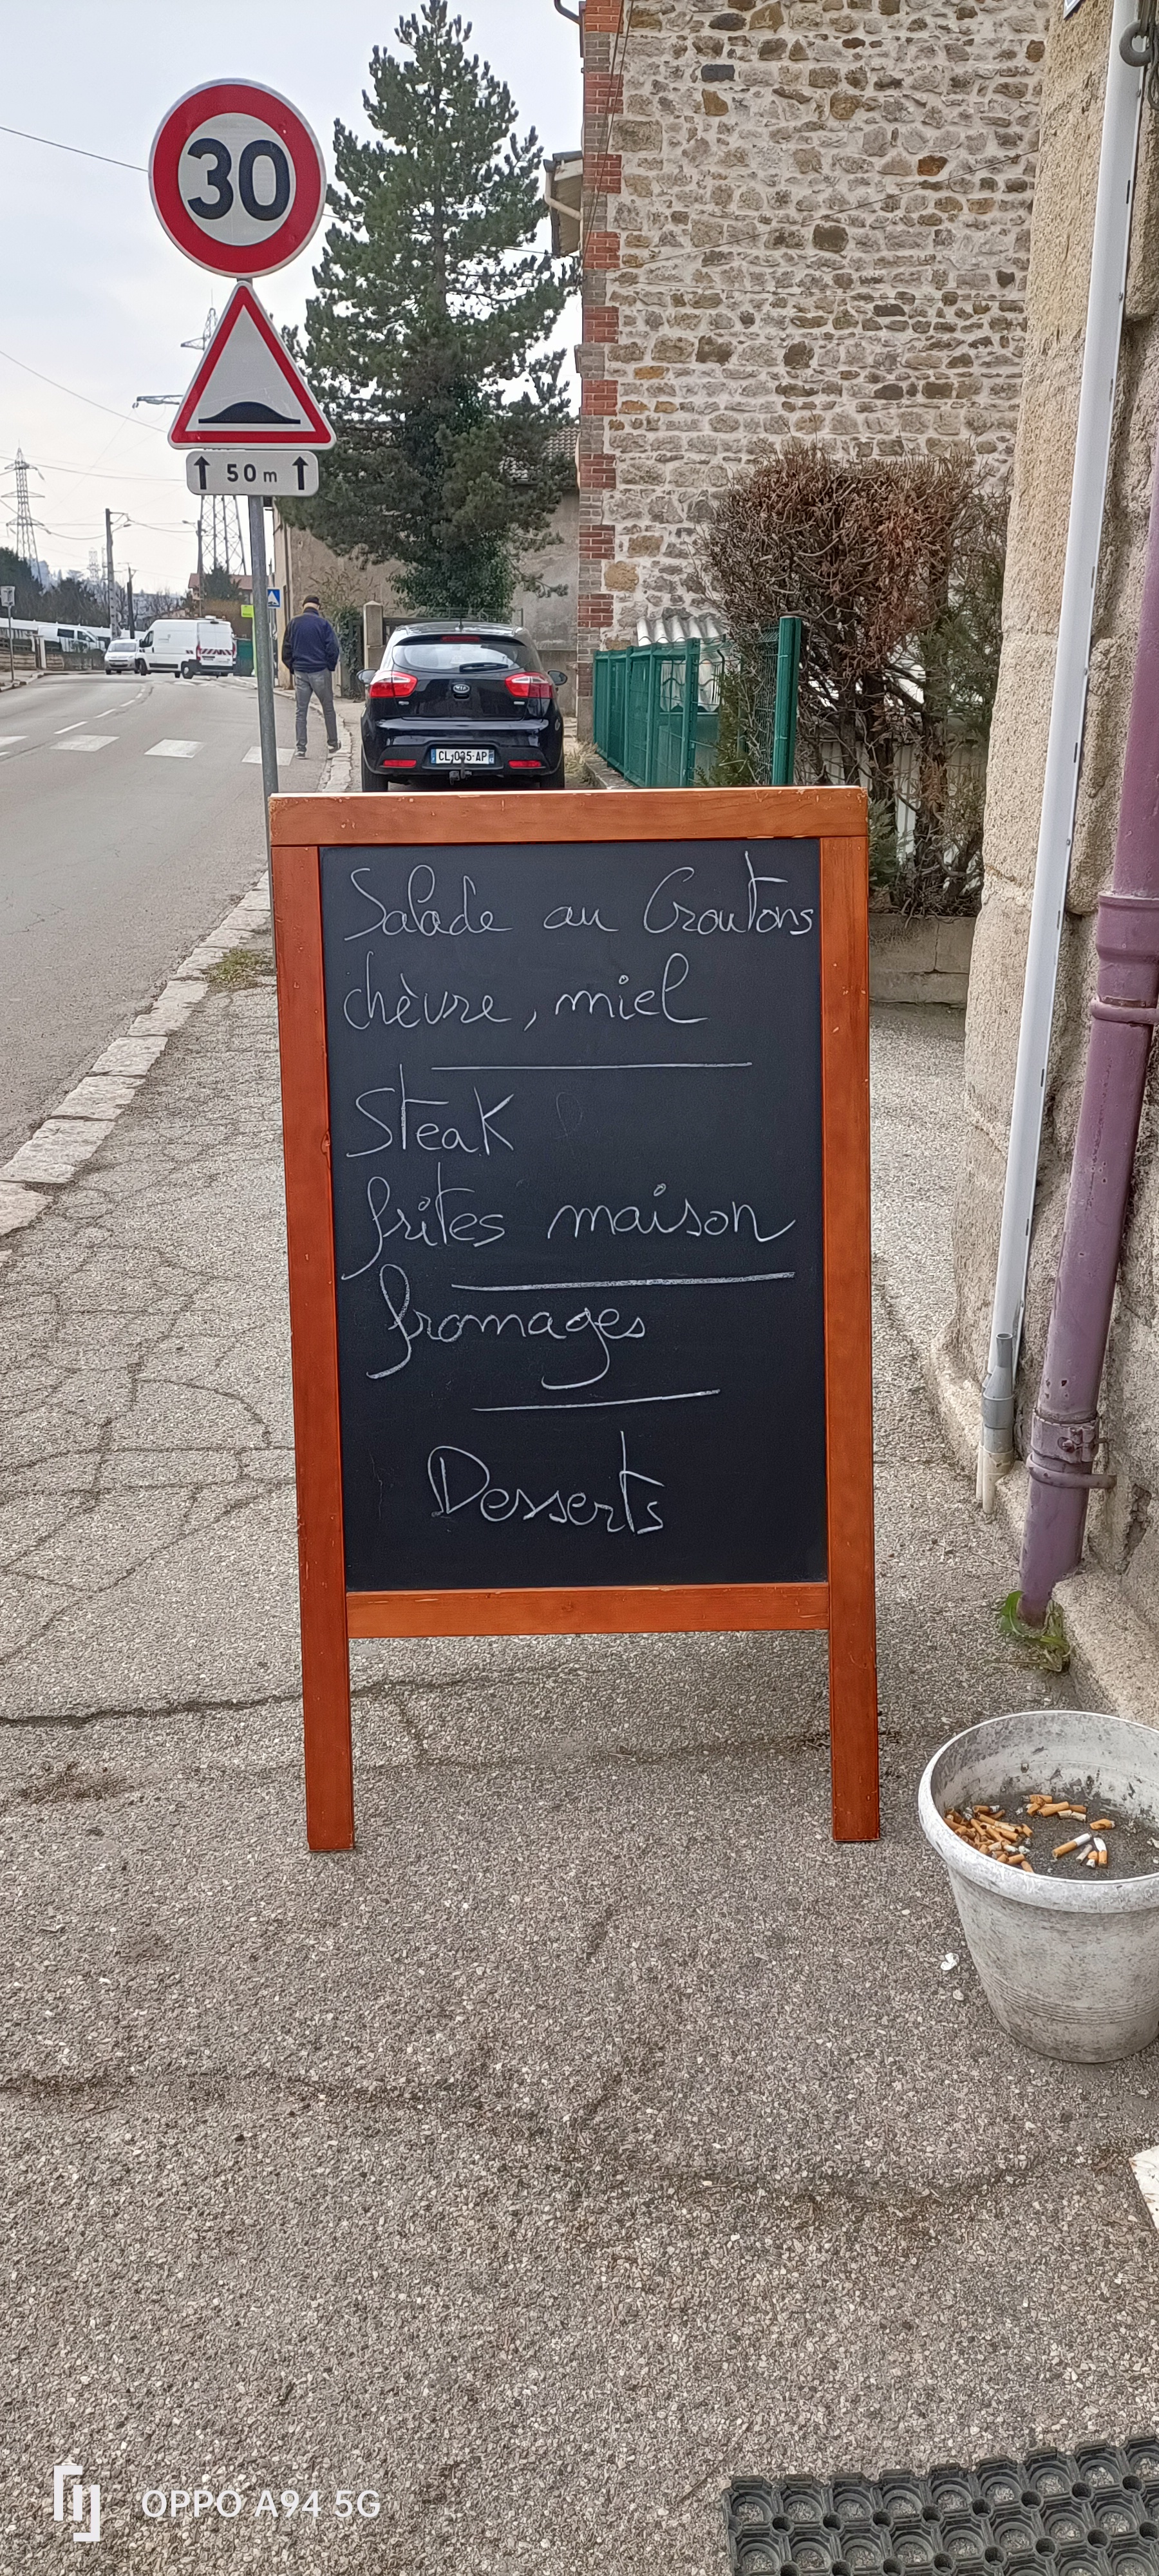 30
50 m
CL-035-AP
Salade au Croutons
chèvre, miel
Steak
frites maison
fromages
Desserts
OPPO A94 5G